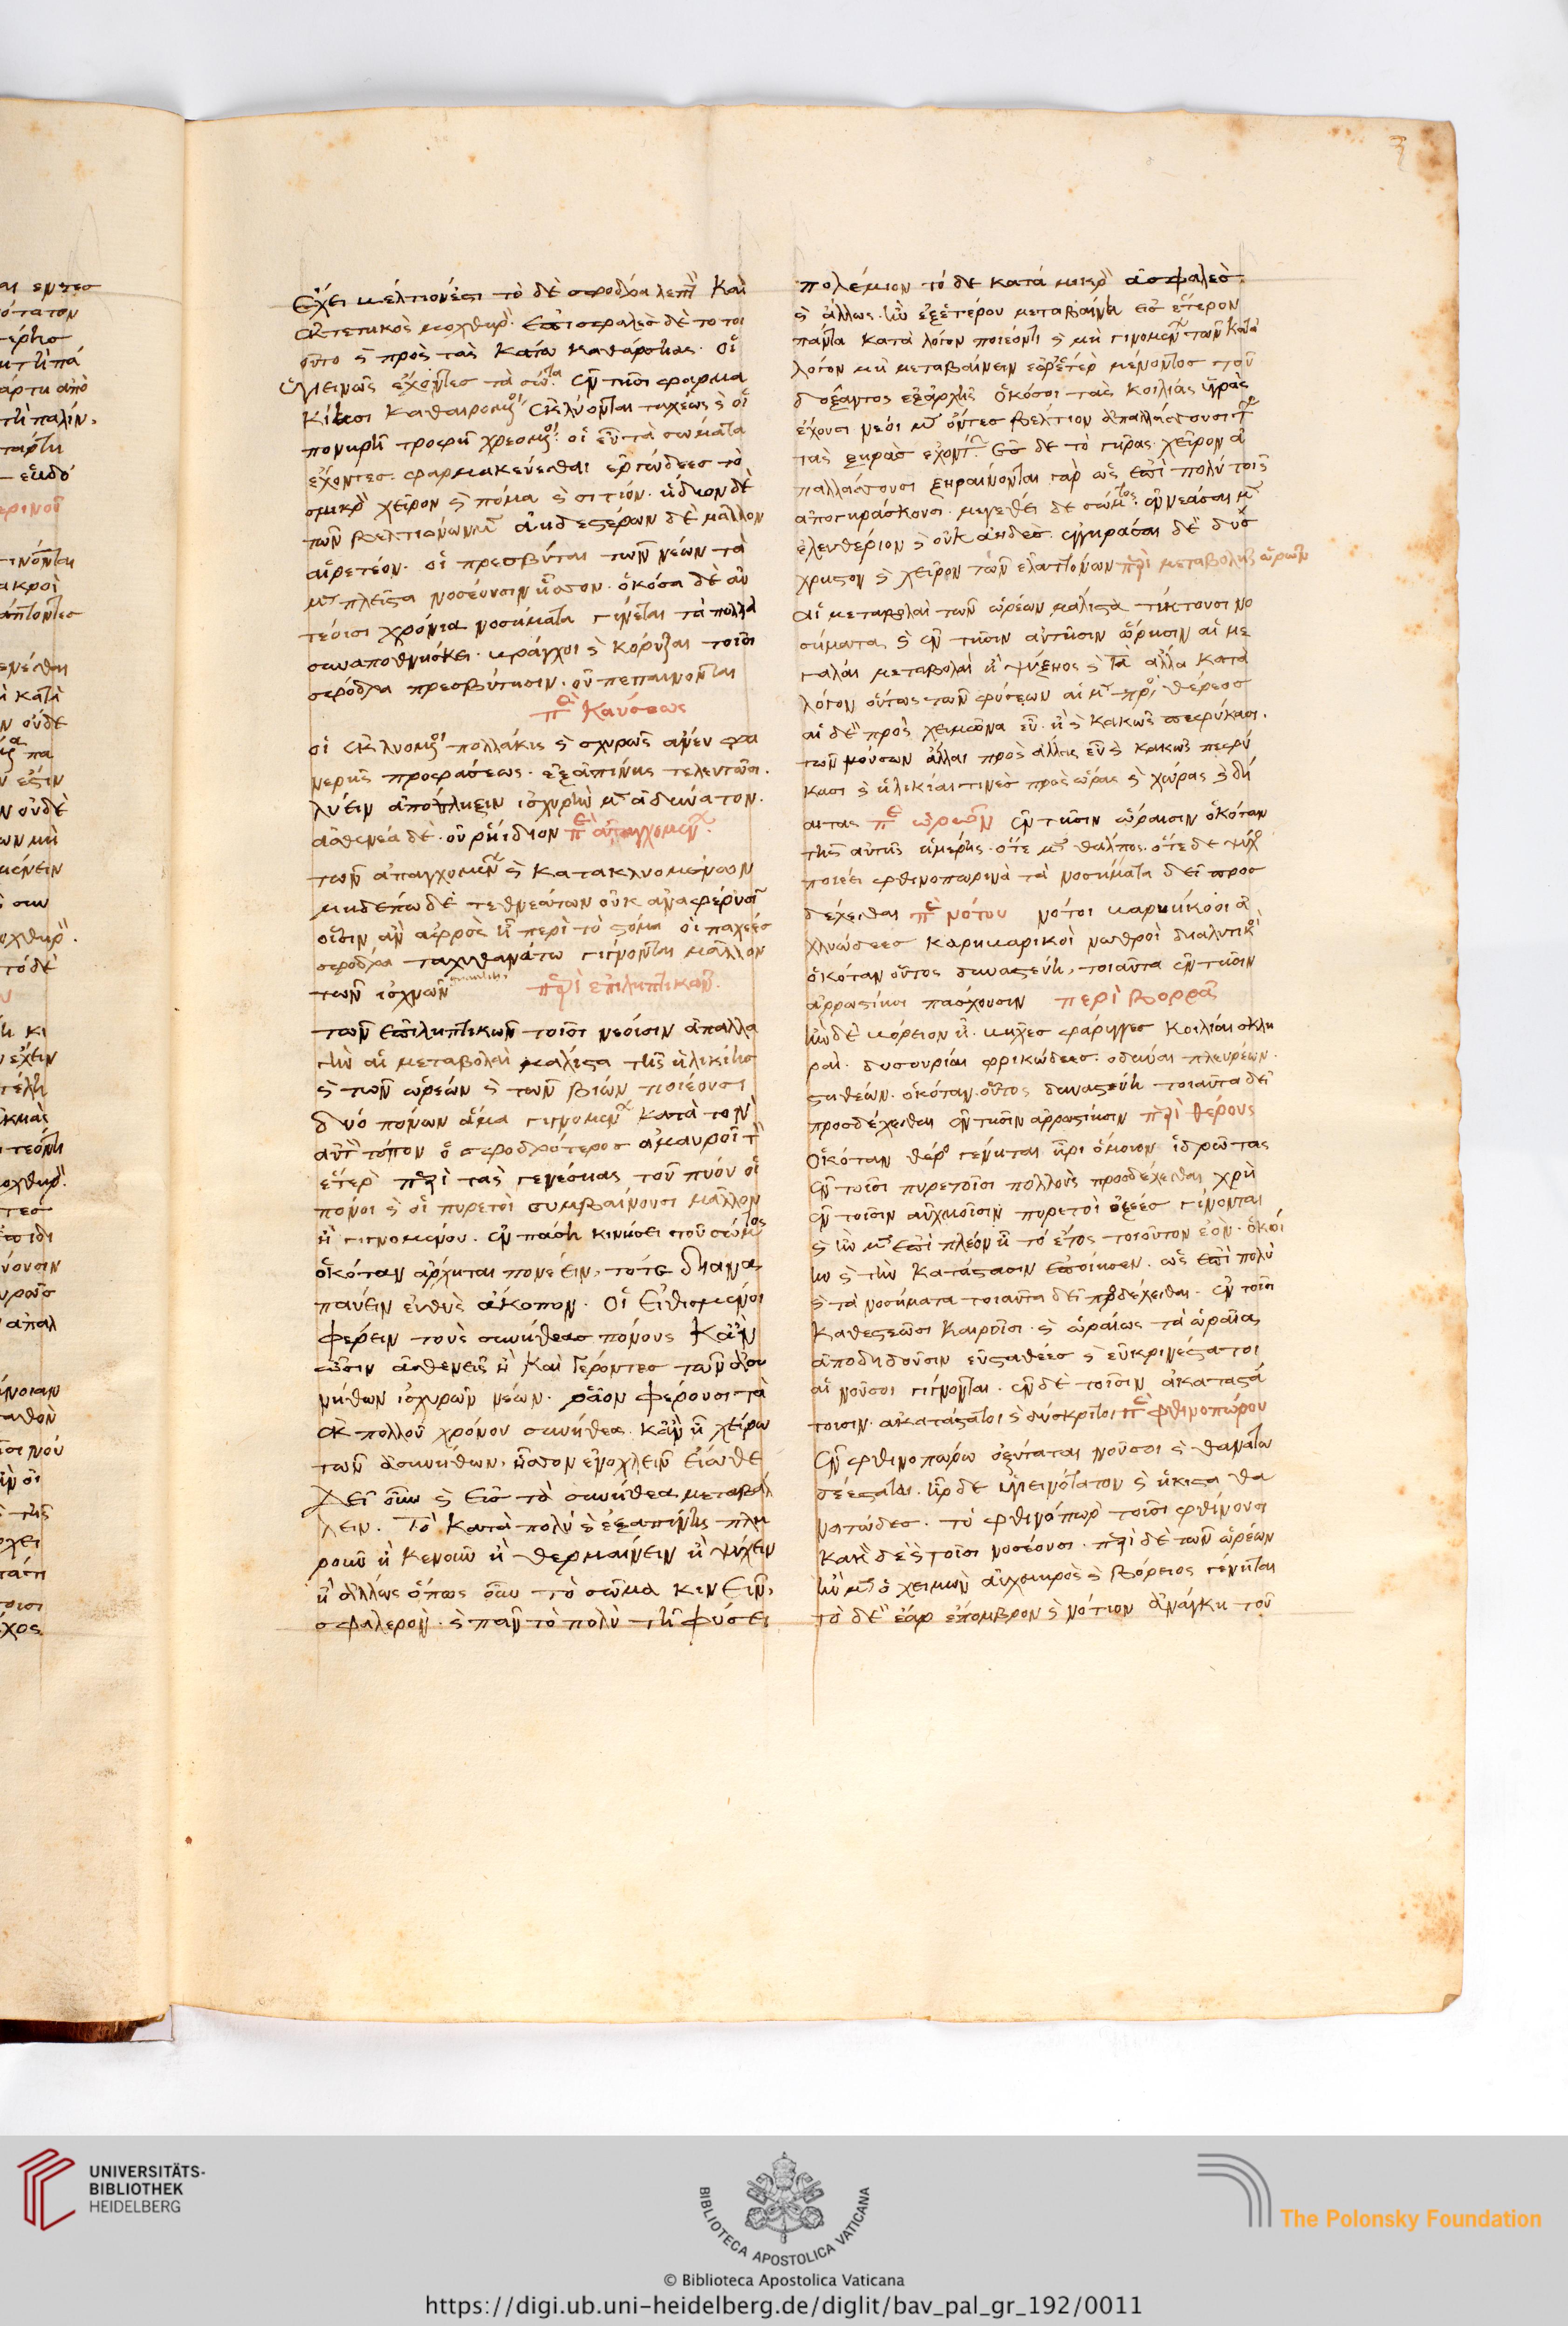 ἔχει βελτιον ἐστι τὸ δὲ σφόδρα λεπτὸν καὶ
ἐκτετηκὸς μοχθηρὸν. ἐπισφαλὲς δὲ το τοι
οῦτο καὶ πρὸς τὰς κάτω καθάρσηας. οἱ
ὑγιεινῶς ἔχοντες τὰ σώματα ἐν τῆσι φαρμα
κίησι καθαιρομενοι ἐκλύονται ταχέως καὶ οἱ
πονηρῆ τροφῆ χρεομενοι. οἱ εὖ τὰ σώματα
ἔχοντες. φαρμακεύεσθαι ἐργώδεες τὸ
σμικρὸν χεῖρον καὶ πόμα καὶ σιτίον. ἥδιον δὲ
τῶν βελτιόνων μὲν ἀηδεστέρων δὲ μᾶλλον
αἱρετέον. οἱ πρεσβύται τῶν νέων τὰ
μὲν πλεῖστα νοσέουσιν ἧσσον. ὁκόσα δὲ ἂν
τέοισι χρόνια νοσήματα γίνεται τὰ πολλὰ
συναποθνήσκει. βράγχοι καὶ κόρυζαι τοῖσι
σφόδρα πρεσβύτησιν. οὐ πεπαινονται
περὶ καύσεως
οἱ ἐκλυομενοι πολλάκις καὶ σχυρῶς ἄνευ φα
νερῆς προφάσεως. ἐξαπίνης τελευτῶσι.
λύειν ἀπόπληξιν ἰσχυρὴν μὲν ἀδυνατον.
ἀσθενέα δὲ. οὐ ῥηίδιον περὶ ἀπαγχομένων
τῶν ἀπαγχομένων καὶ κατακλυομένων
μηδέπω δὲ τεθνεώτων οὐκ ἀναφέρουσι
οἷσιν ἂν ἀφρὸς ᾖ περὶ τὸ στόμα οἱ παχεές
σφόδρα ταχυθανάτω γίγνονται μᾶλλον
τῶν ἰσχνῶν περὶ ἐπιληπτικῶν.
τῶν ἐπιληπτικῶν τοῖσι νέοισιν ἀπαλλα
γὴν αἱ μεταβολαὶ μάλιστα τῆς ἡλικίης
καὶ τῶν ὡρέων καὶ τῶν βίων ποιέουσι
δυό πόνων ἅμα γιγνομένων κατὰ τὸν
αὐτὸν τόπον ὁ σφοδρότερος ἀμαυροῖ τὸν
ἕτερον περὶ τὰς γενέσιας τοῦ πύου οἱ
πόνοι καὶ οἱ πυρετοὶ συμβαίνουσι μᾶλλον
ἢ γιγνομένου. ἐν πάσῃ κινήσει τοῦ σώματος
ὁκόταν ἄρχηται πονέειν, τότε διανα
παύειν εὐθὺς ἄκοπον. οἱ εἰθισμένοι
φέρειν τοὺς συνήθεας πόνους κἂν
ὦσιν ἀσθενεῖς ἢ καὶ γέροντες τῶν ἀσυ
νήθων ἰσχυρῶν νέων. ῥᾶον φέρουσι τὰ
ἐκ πολλοῦ χρόνου συνήθεα. κἂν ᾖ χείρω
τῶν ἀσυνήθων. ἧσσον ἐνοχλεῖν εἰώθε
δεῖ οὖν καὶ εἰς τὰ συνήθεα μεταβάλ
λειν. τὸ κατὰ πολὺ καὶ ἐξαπίνης πλη
ροῦν ἢ κενοῦν ἢ θερμαίνειν ἢ ψύχειν
ἢ ἄλλως ὅπως οὖν τὸ σῶμα κινεῖν,
σφαλερὸν. καὶ πᾶν τὸ πολὺ τῆ φύσει
πολέμιον τό δε κατὰ μικρὸν ἀσφαλὲς.
καὶ ἄλλως. ἢν ἐξ ἑτέρου μεταβαίνη εἰς ἕτερον
πάντα κατὰ λόγον ποιέοντι καὶ μὴ γινομένων τῶν κατὰ
λόγον μὴ μεταβαίνειν ἐφ ἕτερον μένοντος τοῦ
δοξαντος ἐξ ἀρχῆς ὁκόσοι τὰς κοιλίας ὑγρὰς
ἔχουσι νέοι μὲν ὄντες βέλτιον ἀπαλλάσσουσι τῶν
τὰς ξηρὰς ἐχόντων. ἐς δὲ τὸ γῆρας. χεῖρον ἀ
παλλάσσουσι ξηραίνονται γὰρ ὡς ἐπὶ πολὺ τοῖς
ἀπογηράσκουσι. μεγέθει δε σώματος. ἐννεάσαι μὲν
ἐλευθέριον καὶ οὐκ ἀηδὲς. ἐγγηρᾶσαι δὲ δύσ
χρηστον καὶ χεῖρον τῶν ἐλαττόνων περὶ μεταβολῆς ὡρῶν
αἱ μεταβολαὶ τῶν ὡρέων μάλιστα τίκτουσι νο
σήματα, καὶ ἐν τῆσιν αὐτῆσιν ὥρησιν αἱ με
γάλαι μεταβολαὶ ἢ ψύξιος καὶ τὰ ἄλλα κατὰ
λόγον οὕτως τῶν φύσεων αἱ μὲν πρὸς θέρεος
αἱ δὲ πρὸς χειμῶνα εὖ. ἢ καὶ κακῶς πεφύκασι.
τῶν νούσων ἄλλαι πρὸς ἄλλας εὖ καὶ κακῶς πεφύ
κασι καὶ ἡλικίαι τινὲς πρὸς ὥρας καὶ χώρας καὶ δι
αιτας περὶ ὡρῶν ἐν τῆσιν ὥραισιν ὁκόταν
τῆς αὐτῆς ἡμέρης. ὁτὲ μὲν θάλπος. ὁτέ δε ψύχος
ποιέει φθινοπωρινὰ τὰ νοσήματα δεῖ προσ
δέχεσθαι περὶ νότου νότοι βαρυήκοοι ἀ
χλυώδεες καρηβαρικοὶ νωθροὶ διαλυτικοὶ
ὁκόταν οὗτος δυναστεύη, τοιαῦτα ἐν τῆσιν
ἀρρωστίησι πάσχουσιν περὶ βορρᾶς
ἢν δὲ βόρειον ᾖ. βῆχες φάρυγγες κοιλίαι σκλη
ραὶ. δυσουρίαι φρικώδεες. ὀδύναι πλευρέων.
στηθέων. ὁκόταν. οὗτος δυναστεύη τοιαῦτα δεῖ
προσδέχεσθαι ἐν τῆσιν ἀρρωστίησιν περὶ θέρους
ὁκόταν θέρος γένηται ἦρι ὅμοιον ἱδρῶτας
ἐν τοῖσι πυρετοῖσι πολλοὺς προσδέχεσθαι χρὴ
ἐν τοῖσιν αὐχμοῖσιν πυρετοὶ ὀξέες γίνονται
καὶ ἢν μὲν ἐπὶ πλέον ᾖ τό ἔτος τοιοῦτον ἐὸν. ὁκοί
ην καὶ τὴν κατάστασιν ἐποίησεν. ὡς ἐπὶ πολὺ
καὶ τὰ νοσήματα τοιαῦτα δεῖ προσδέχεσθαι. ἐν τοῖσι
καθεστεῶσι καιροῖσι. καὶ ὡραίως τὰ ὡραῖα,
ἀποδιδοῦσιν εὐσταθέες καὶ εὐκρινέστατοι
αἱ νοῦσοι γίγνονται. ἐν δὲ τοῖσιν ἀκαταστά
τοισιν. ἀκατάστατοι καὶ δύσκριτοι περὶ φθινοπώρου
ἐν φθινοπώρω ὀξύταται νοῦσοι καὶ θανατω
δέεσταται. ἦρ δε ὑγιεινότατον καὶ ἥκιστα θα
νατῶδες. τὸ φθινόπωρον τοῖσι φθίνουσι
κακὸν δὲ καὶ τοῖσι νοσέουσι. περὶ δὲ τῶν ὡρέων
ἢν μὲν ὁ χειμὼν αὐχμηρὸς καὶ βόρειος γένηται
τὸ δὲ ἔαρ ἔπομβρον καὶ νότιον ἀνάγκη τοῦ
UNIVERSITÄTS-
BIBLIOTHEK
HEIDELBERG
BIBLIOTECA APOSTOLICA VATICANA
The Polonsky Foundation
© Biblioteca Apostolica Vaticana
https://digi.ub.uni-heidelberg.de/diglit/bav_pal_gr_192/0011